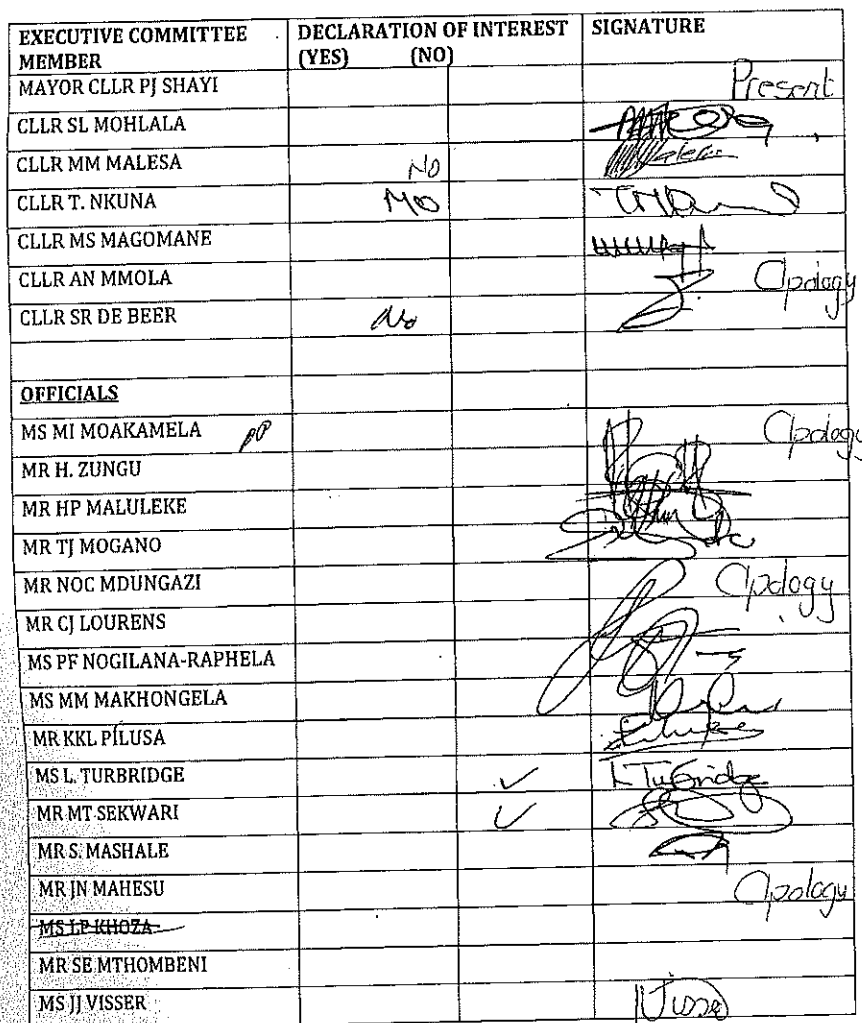 EXECUTIVE COMMITTEE MEMBER DECLARATION OF INTEREST (YES) (NO) SIGNATURE
MAYOR CLLR PJ SHAYI Present
CLLR SL MOHLALA
CLLR MM MALESA No
CLLR T. NKUNA No
CLLR MS MAGOMANE
CLLR AN MMOLA Apology
CLLR SR DE BEER No
OFFICIALS
MS MI MOAKAMELA pp Apology
MR H. ZUNGU
MR HP MALULEKE
MR TJ MOGANO
MR NOC MDUNGAZI Apology
MR CJ LOURENS
MS PF NOGILANA-RAPHELA
MS MM MAKHONGELA
MR KKL PILUSA
MS L. TURBRIDGE ✓ L Turbridge
MR MT SEKWARI ✓
MR S. MASHALE
MR JN MAHESU Apology
MS LP KHOZA
MR SE MTHOMBENI
MS JJ VISSER JVisser